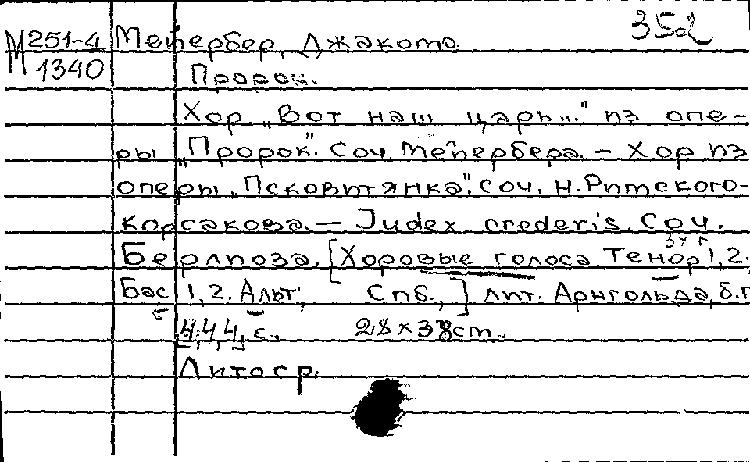 352
М 251-4 Мейербер, Джакомо.
1340 Пророк.
Хор „Вот наш царь..." из опе-
ры „Пророк". Соч. Мейербера. — Хор из
оперы „Псковитянка", соч. Н. Римского-
Корсакова. — Judex crederis. Соч.
Берлиоза. [Хоровые голоса Тенор 1, 2.
Бас 1, 2. Альт, Спб., ] лит. Арнгольда, б.г
4, 4, 4, с. 28×38 cm.
Литогр.